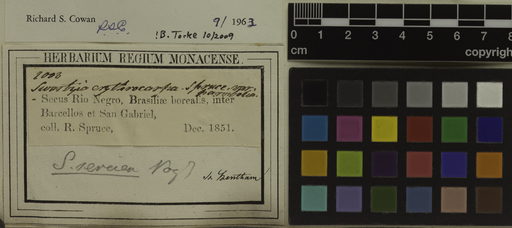 Richard S. Cowan
9/ 1963
!B. Torke 10/2009
HERBARIUM REGIUM MONACENSE.
2008
Swartzia erythrocarpa Spruce, var.
- Secus Rio Negro, Brasiliæ borealis, inter
Barcellos et San Gabriel,
coll. R. Spruce, Dec. 1851.
S. sericea Vog
Bentham
0 1 2 3
cm
copyright